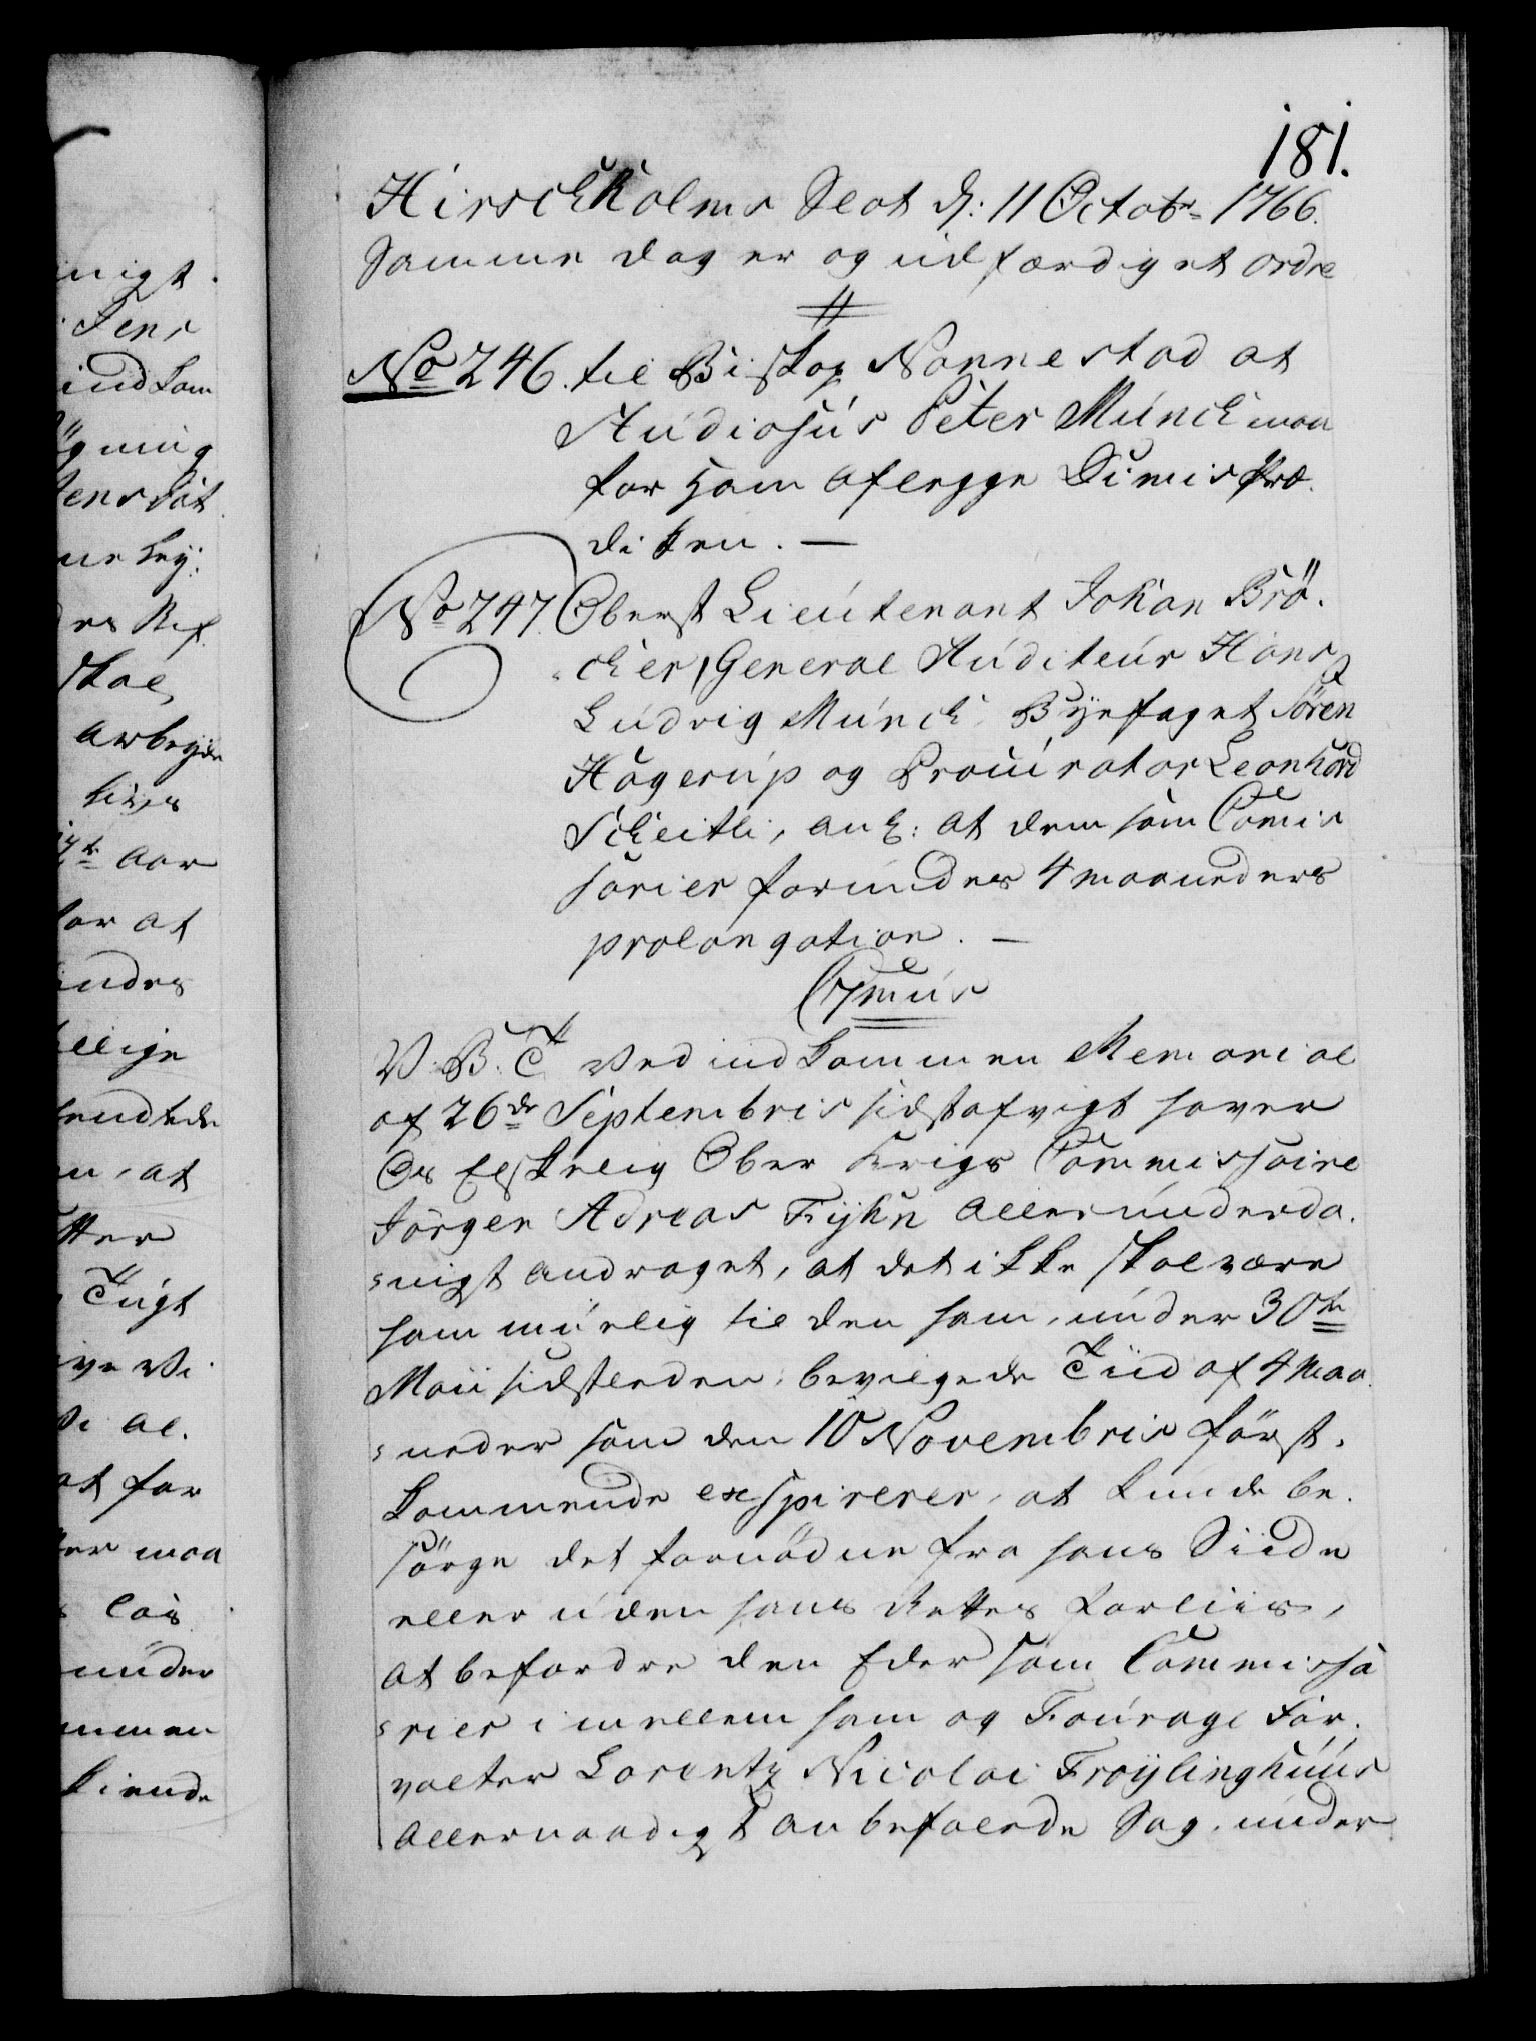 181.
Hirschholms Slot d: 11 Octobr: 1766.
Samme dag er og udfærdiget ordre
No 246. til Biskop Nannestad at
Studiosus Peter Münch maa
for ham aflegge Dimis Præ-
diken. —
No 247. Oberst Lieutenant Johan Brö-
cher, General Auditeur Hans
Ludvig Munch Byefoget Sören
Hagerup og Procurator Leonhard
Scheitli, anl: at dem som Comis
sarier forundes 4 maaneders
prolongation. —
C7mus
V. B. T. Ved indkommen Memorial
af 26de Septembris sidstafvigt haver
Os Elskelig Ober Krigs Commissaire
Jörgen Adreas Fyhn allerunderda-
nigst andraget, at det ikke skal være
ham muelig til den ham, under 30te
Maii sidstleden, bevilgede Tiid af 4 Maa-
neder som den 10 Novembris först-
kommende exspirerer, at kunde be-
sörge det fornödne fra hans Siide
eller uden hans Rettes Forliis,
at befordre den Eder som Commissa
rier imellem ham og Fourage For-
valter Lorentz Nicolai Fröylinghuus
allernaadigst anbefalede Sag, under
nigt.
Jens
indkom
ning
aar
for at
at
Tugt
ve Vi
al-
at for
maa
under